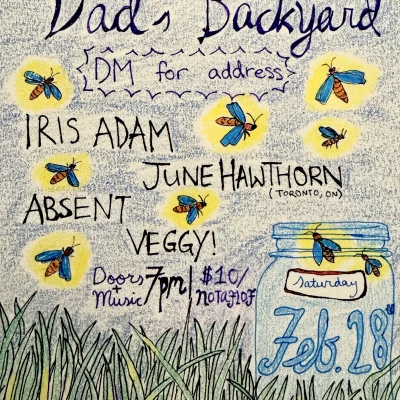 Dad's Backyard
DM for address
IRIS ADAM
JUNE HAWTHORN
(TORONTO, ON)
ABSENT
VEGGY!
Doors + Music 7pm | $10/NOTAFLOF
Saturday
Feb. 28th